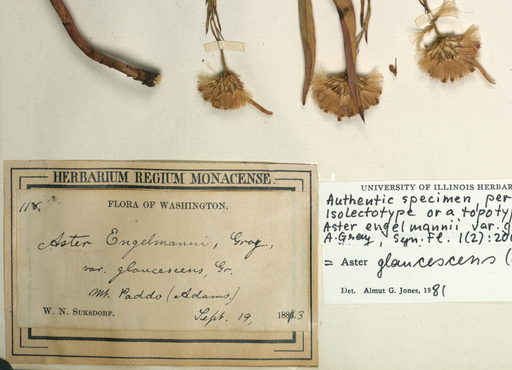 HERBARIUM REGIUM MONACENSE.
118.
FLORA OF WASHINGTON.
Aster Engelmanni, Gray,
var. glaucescens, Gr.
Mt. Paddo (Adams)
W. N. SUKSDORF.
Sept. 19, 1883
UNIVERSITY OF ILLINOIS HERBAR
Authentic specimen, per
Isolectotype or a topotyp
Aster engelmannii var. g
A. Gray, Syn. Fl. 1(2): 20
= Aster glaucescens (
Det. Almut G. Jones, 1981